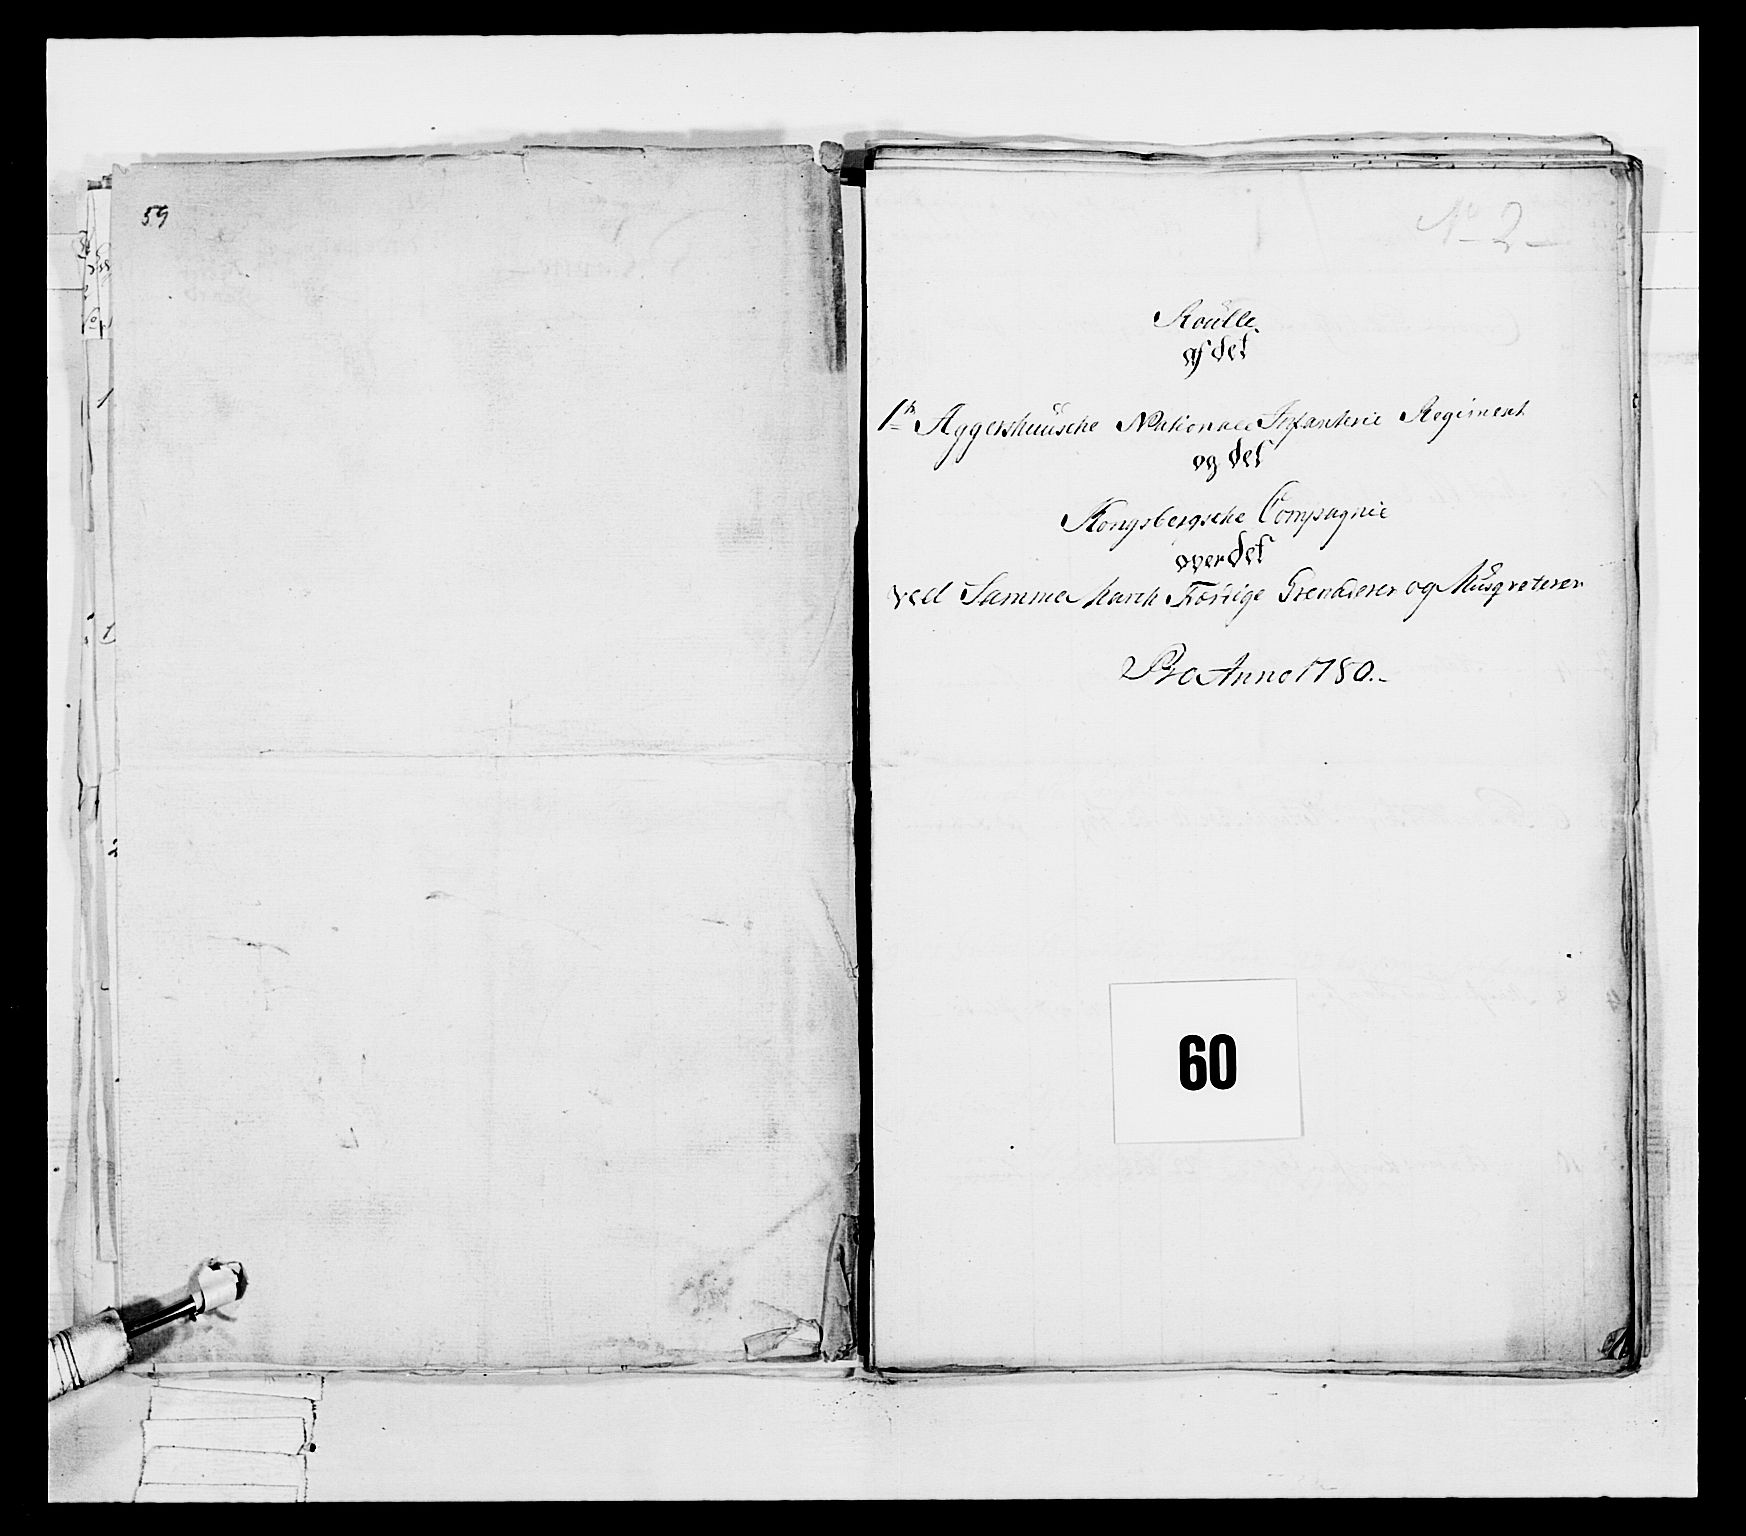 59
No 2
Roülle
af det
1te Aggershuüsche Nationale Infanterie Regiment
og det
Kongsbergsche Compagnie
over det
ved Samme March Færdige Grenaderer og Musqveterer
Pro Anno 1780.
60